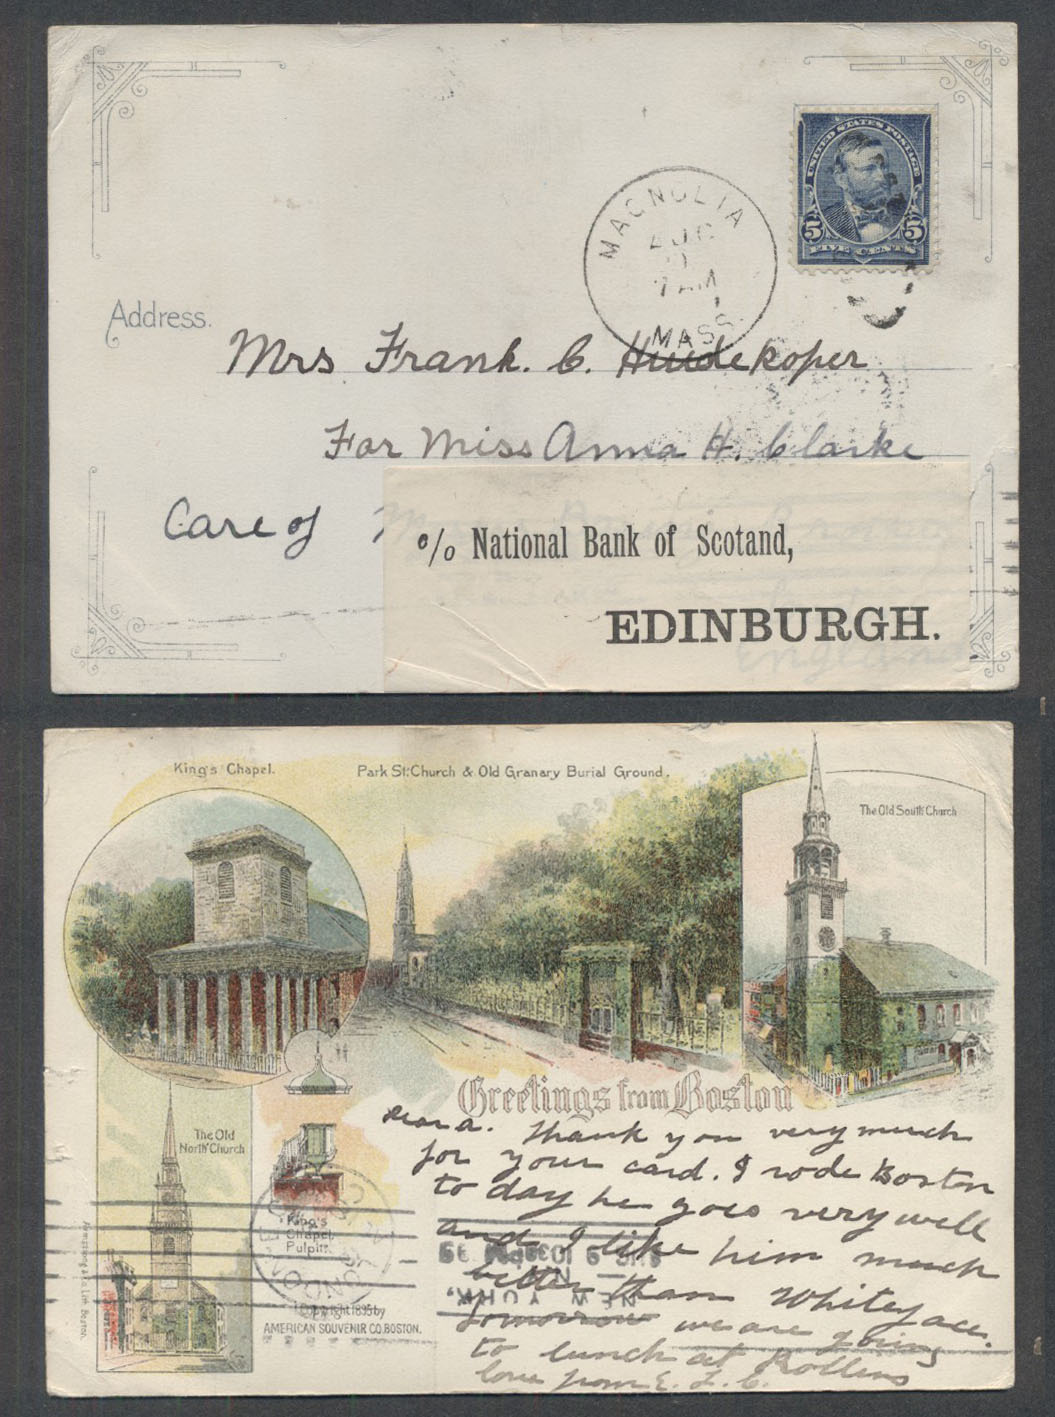 UNITED STATES POSTAGE
5 5
FIVE CENTS
MAGNOLIA
AUG
7 AM
MASS.
Address.
Mrs Frank. C. Huidekoper
For Miss Anna H. Clarke
Care of
% National Bank of Scotand,
EDINBURGH.
England
King's Chapel.
Park St. Church & Old Granary Burial Ground.
The Old South Church
Greetings from Boston
The Old
North Church
King's
Chapel
Pulpit.
Copyright 1895 by
AMERICAN SOUVENIR CO. BOSTON.
Armstrong & Co. Lith. Boston.
Dear A. Thank you very much
for your card. I rode Boston
to day he goes very well
and I like him much
better than Whiteface.
Tomorrow we are going
to lunch at Rollins
love from E. L. C.
NEW YORK
AUG 9 1030PM 99
LONDON